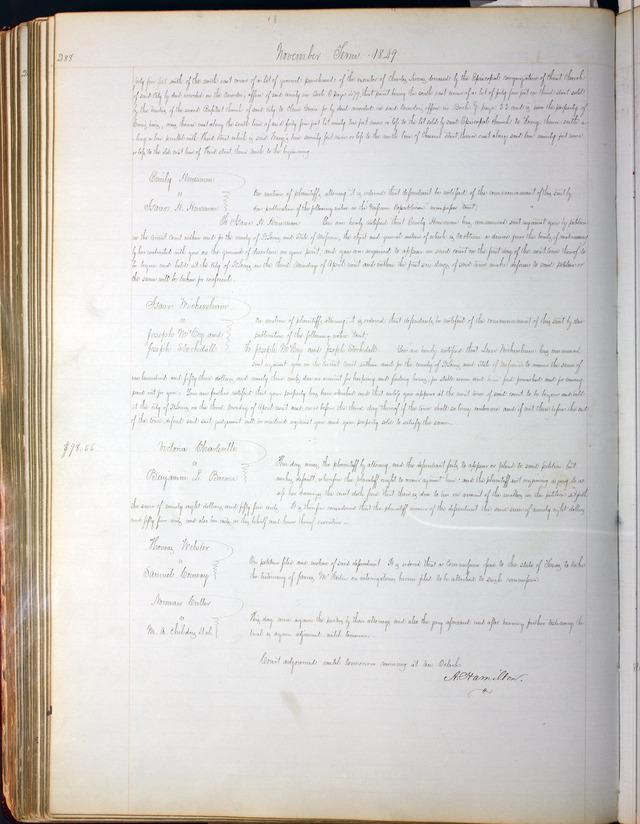 388
November Term 1849
fifty five feet north of the north east corner of a lot of ground purchased of the executor of Charles by the Episcopal congregation of Christ Church
of said City by deed recorded in the Recorders office of said county in Book page 479, that point being the north east corner of a lot of fifty five feet on Third street sold
by the trustees of the second Baptist church of said city to by deed recorded in said Recorders office in Book page 33 and is now the property of
thence east along the north line of said fifty five feet lot ninety two feet more or less to the lot sold by said Episcopal church to thence north
a line parallel with Third street which is said line seventy five feet more or less to the south line of Chesnut street, thence east along said line ninety feet more
or less to the west line of Third street thence south to the beginning
Emily Housman
vs
Isaac H. Housman
On motion of plaintiffs attorney, it is ordered that defendant be notified of the commencement of this suit by
due publication of the following notice in the "Missouri Republican" newspaper
To Isaac H. Housman You are hereby notified that Emily Housman has commenced suit against you by petition
in the Circuit Court within and for the county of St Louis and State of Missouri, the object and general nature of which is, to obtain a divorce from the bonds of matrimony
by her contracted with you on the ground of desertion on your part, and you are required to appear in said court on the first day of the next term thereof to
be begun and held at the City of St Louis on the third Monday of April next and within the first six days of said term make defence to said petition or
the same will be taken for confessed.
Isaac Wickersham
vs
Joseph McCoy and
Joseph Stockdall
On motion of plaintiffs attorney, it is ordered that defendants be notified of the commencement of this suit by due
publication of the following notice
To Joseph McCoy and Joseph Stockdall. You are hereby notified that Isaac Wickersham has commenced
suit against you in the Circuit Court within and for the county of St Louis and State of Missouri to recover the sum of
one hundred and fifty three dollars and ninety three cents, due on account for keeping and feeding horses, for stable room and
You are further notified that your property has been attached and that unless you appear at the next term of said court to be begun and held
at the City of St Louis, on the third Monday of April next and on or before the third day thereof if the term shall so long continue and if not then before the end
of the term, defend said suit, judgment will be rendered against you and your property sold to satisfy the same.
$98.55
Victoria Charleville
vs
Benjamin L. Bacon
This day comes the plaintiff by attorney, and the defendant fails to appear or plead to said petition but
makes default, wherefore the plaintiff ought to recover against him: and the plaintiff not requiring a jury to
assess her damages, the court doth find that there is due to her on account of the matters in the petition set forth
the sum of ninety eight dollars and fifty five cents. It is therefore considered that the plaintiff recover of the defendant the said sum of ninety eight dollars
and fifty five cents, and also her costs in this behalf and have thereof execution.
Thomas Webster
vs
Samuel Conway
On petition filed and motion of said defendant It is ordered that a commission issue to the state of Texas, to take
the testimony of James on interrogatories herein filed to be attached to such commission
Norman Cutter
vs
M. A.
This day come again the parties by their attorneys and also the jury aforesaid and after hearing further testimony the
trial is again adjourned until tomorrow.
Court adjourned until tomorrow morning at ten Oclock.
A. Hamilton.